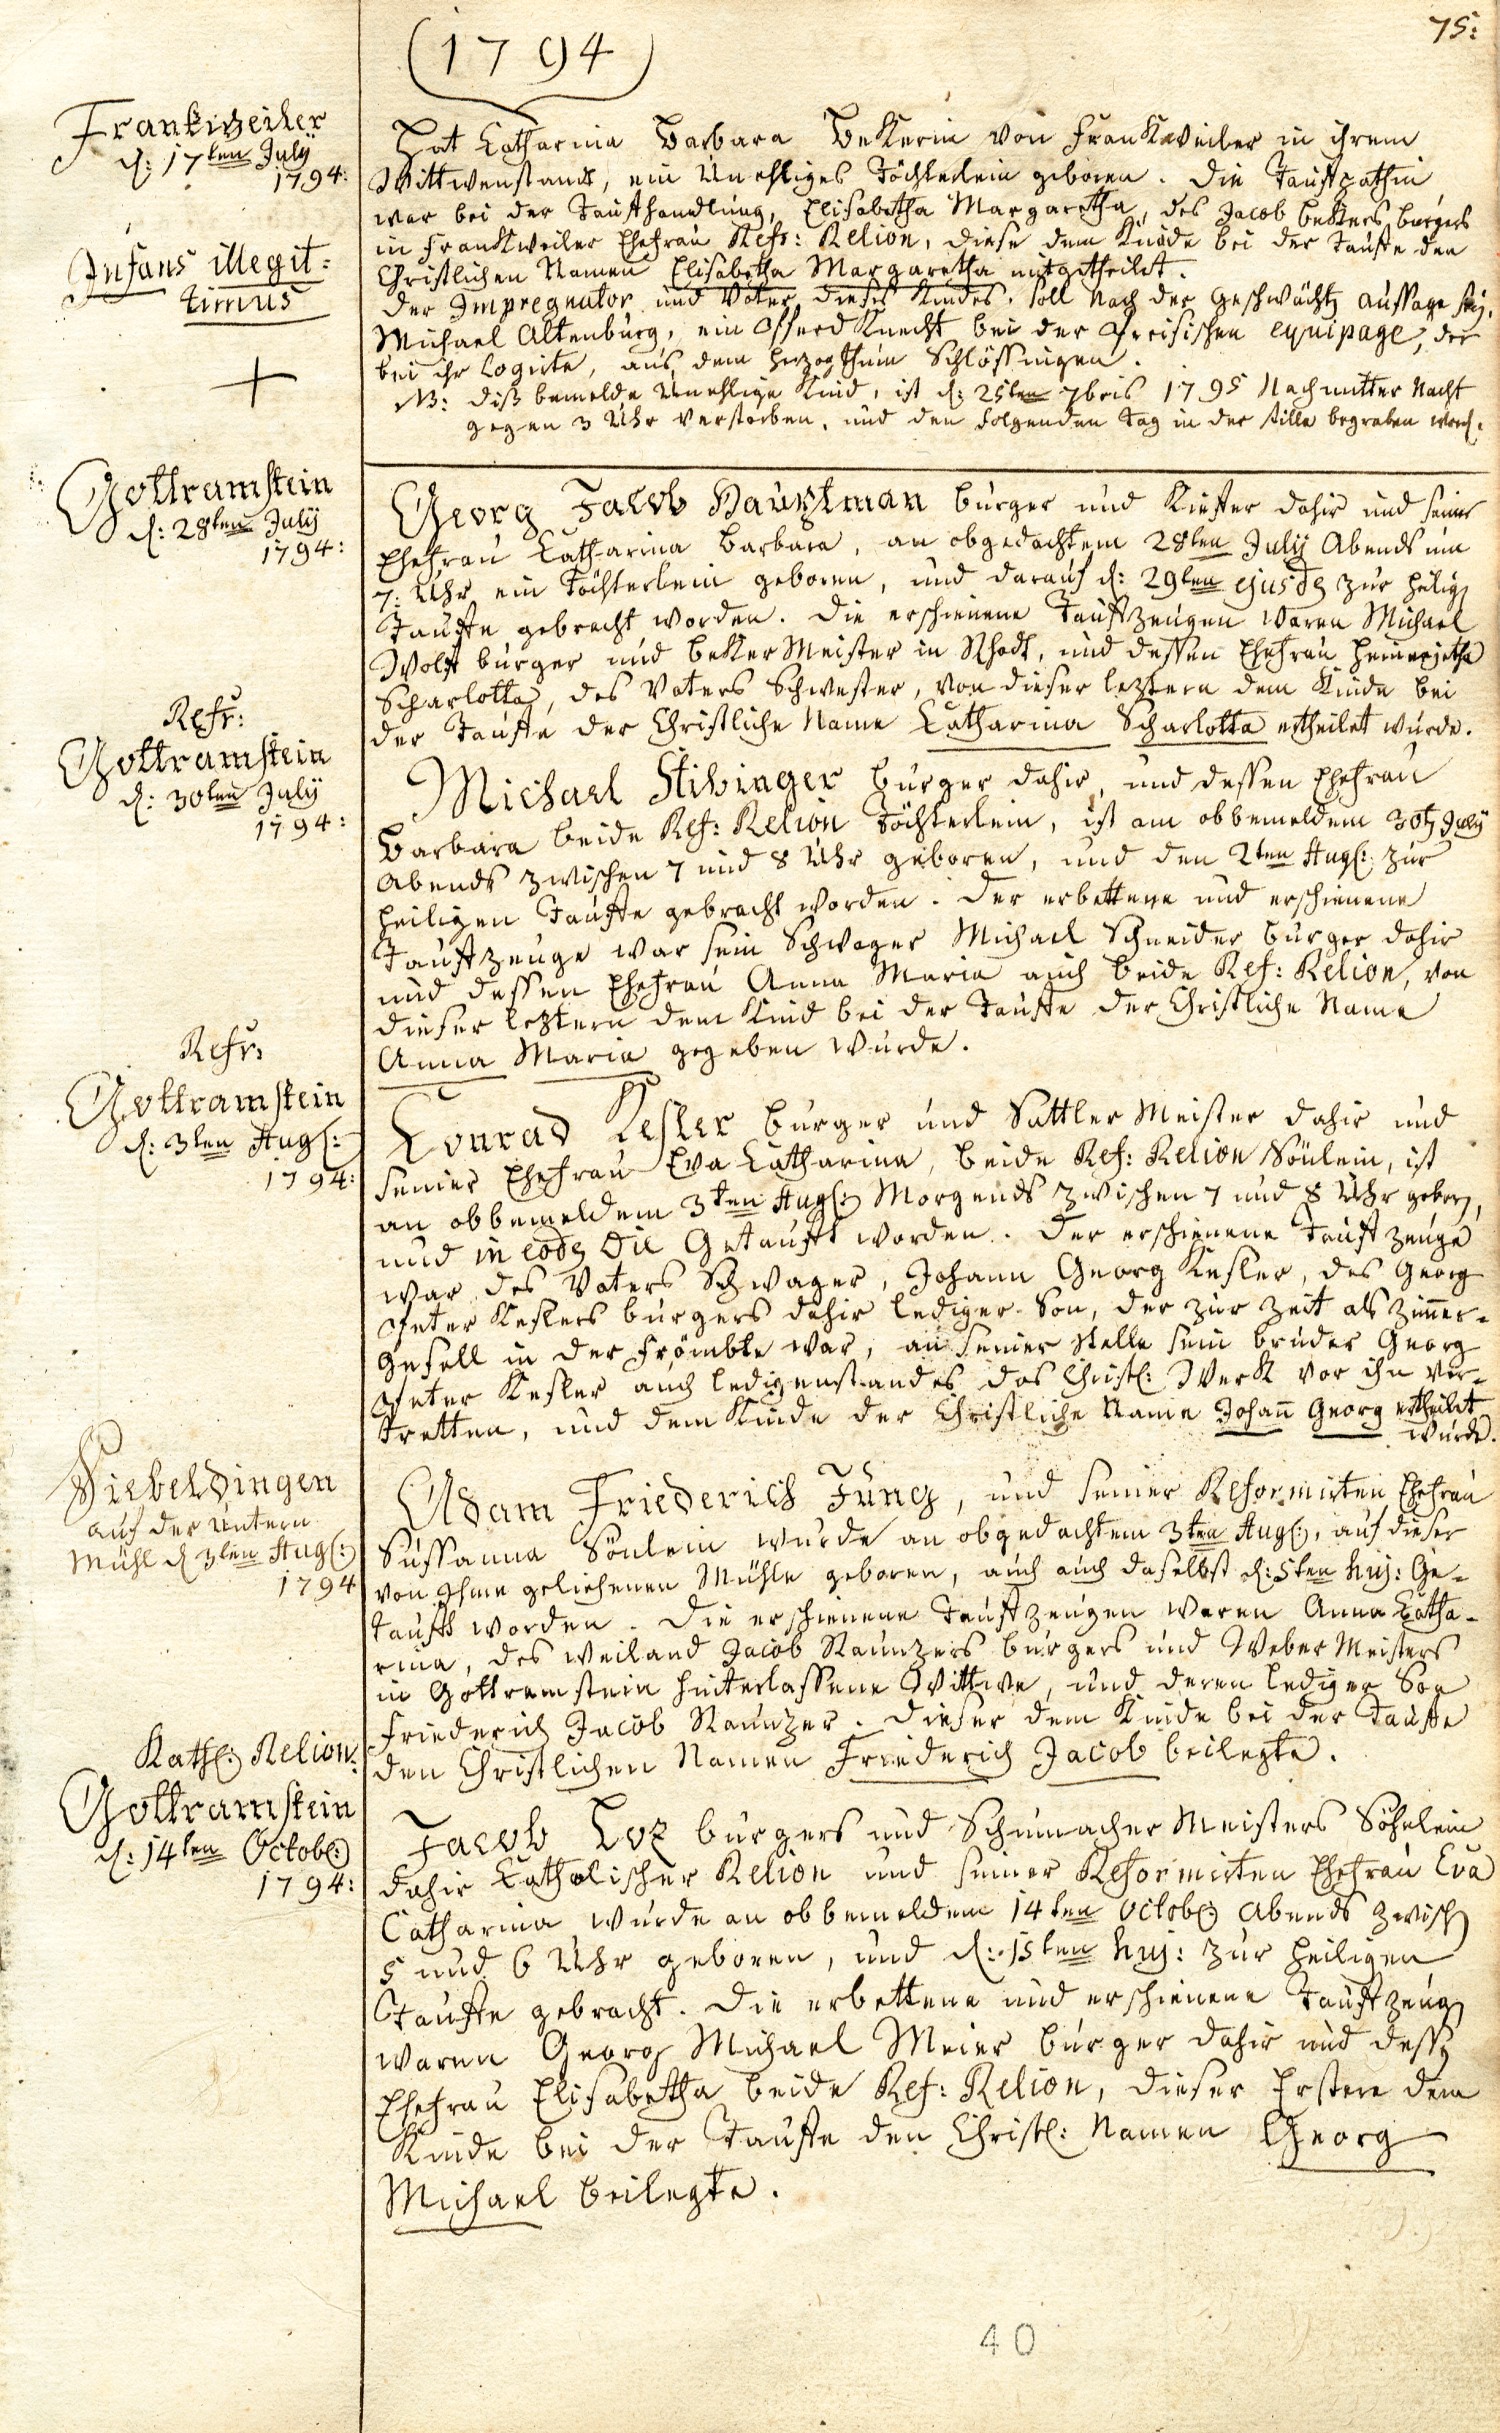 75:
(1794)
Frankweiler
d: 17ten Julÿ
1794:
Infans illegit:
timus
+
Hat Catharina Barbara Bekerin von Frankweiler in ihrem
Wittwenstand, ein Unehliges Töchterlein geboren. Die Taufpathin
war bei der Taufhandlung, Elisabetha Margaretha, des Jacob Bekers burgers
in Frankweiler Ehefrau Refr: Relion, diese dem Kinde bei der Taufe den
Christlichen Namen Elisabetha Margaretha mitgetheilet.
Der Impregnator und Vater dieses Kindes, soll nach der Geschwächtz aussage sey.
Michael Altenburg, ein Pferd Knecht bei der Preisischen equipage, der
bei ihr Logirte, aus dem Herzogthum Schlössingen.
NB: diß bemelde Unehlige Kind, ist d: 25ten 7bris 1795 Nachmitter Nacht
gegen 3 Uhr verstorben, und den folgenden Tag in der stille begraben word.
Gottramstein
d: 28ten Julÿ
1794:
Georg Jacob Hauptman burger und Kiefter dahir und seiner
Ehefrau Catharina Barbara, an obgedachtem 28ten Julÿ Abends um
7: Uhr ein Töchterlein geboren, und darauf d: 29ten ejusdg zur heilig
Taufte gebracht worden. Die erschienene Taufzeugen waren Michael
Wolf burger und beker Meister in Rhodt, und dessen Ehefrau Heinerjetha
Scharlotta, des Vaters Schwester, von dieser leztern dem Kinde bei
der Taufte der Christliche Name Catharina Scharlotta ertheilet wurde.
Refr:
Gottramstein
d: 30ten Julÿ
1794:
Michael Stibinger burger dahir, und dessen Ehefrau
Barbara beide Ref: Relion Töchterlein, ist am obbemeldem 30tg Julÿ
Abends zwischen 7 und 8 Uhr geboren, und den 2ten Augs: zur
heiligen Taufte gebracht worden. Der erbettene und erschienene
Taufzeuge war sein Schwager Michael Schneider burger dahir
und dessen Ehefrau Anna Maria auch beide Ref: Relion, von
dieser leztern dem Kind bei der Taufte der Christliche Name
Anna Maria gegeben wurde.
Refr:
Gottramstein
d: 3ten Augs:
1794:
Conrad Kesler burger und Sattler Meister dahir und
seiner Ehefrau Eva Catharina, beide Ref: Relion Sönlein, ist
an obbemeldem 3ten Augs: Morgends zwischen 7 und 8 Uhr geborg,
und in eodg Die Getauft worden. Der erschienene Taufzeuge
war des Vaters Schwager, Johann Georg Kesler, des Georg
Peter Keslers burgers dahir lediger Son, der zur zeit als zimer-
gesell in der Frömbte war, an seiner Stelle sein bruder Georg
Peter Kesler auch ledigenstandes das Christl: Werk vor ihn ver-
tretten, und dem Kinde der Christliche Name Johañ Georg ertheilet
wurde.
Siebeldingen
auf der Untern
Mühl d 3ten Augs:
1794
Adam Friederich Jung, und seiner Reformirten Ehefrau
Sussanna Sönlein wurde an obgedachtem 3ten Augs:, auf dieser
von Ihme geliehenen Mühle geboren, auch auch daselbst d: 5ten huj: Ge-
tauft worden. Die erschienene Taufzeugen waren Anna Catha-
rina, des weiland Jacob Raunzers burgers und Weber Meisters
in Gottramstein hinterlassene Wittwe, und deren lediger Son
Friederich Jacob Raunzer. Dieser dem Kinde bei der Taufte
den Christlichen Namen Friederich Jacob beilegte.
Kathl: Relion:
Gottramstein
d: 14ten Octobr:
1794:
Jacob Loz burgers und Schumacher Meisters Söhnlein
dahir Catholischer Relion und seiner Reformirten Ehefrau Eva
Catharina wurde an obbemeldem 14ten Octobr: Abends zwisch
5 und 6 Uhr geboren, und d: 15ten huj: zur heiligen
Taufte gebracht. Die erbettene und erschienene Taufzeug
waren Georg Michael Meier burger dahir und dessg
Ehefrau Elisabetha beide Ref: Relion, dieser Erstere dem
Kinde bei der Taufte den Christl: Namen Georg
Michael beilegte.
40